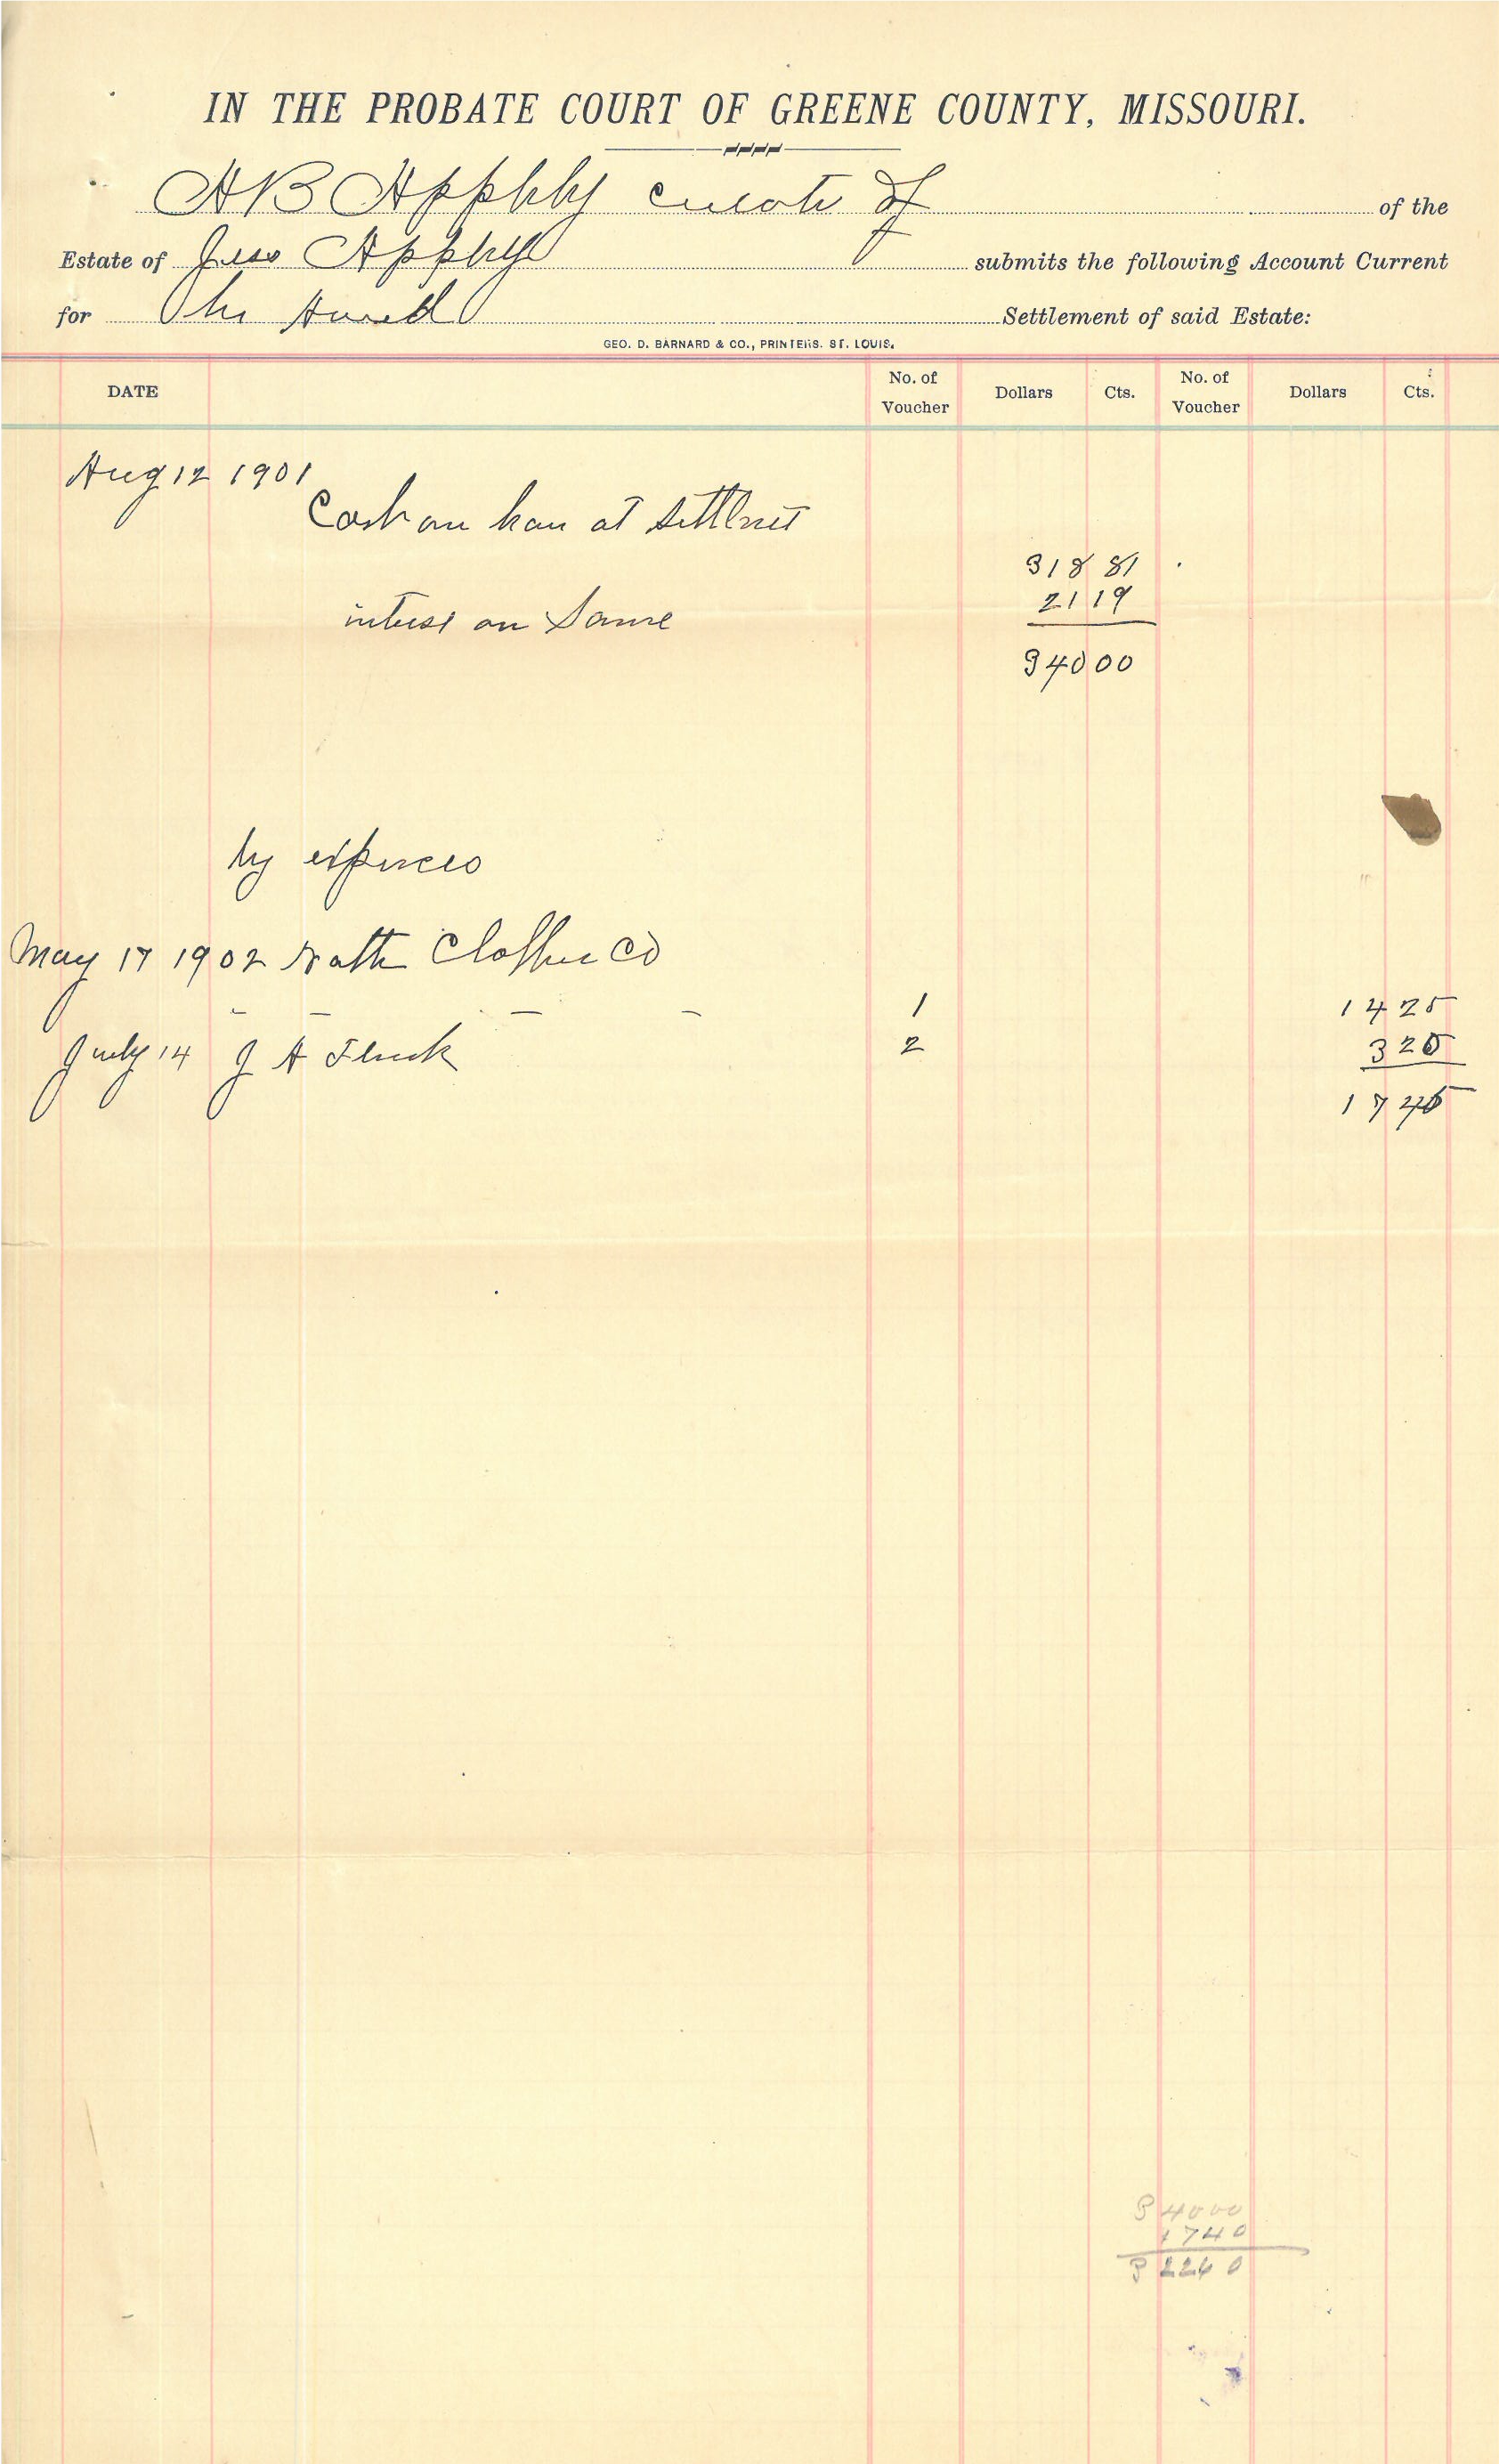 IN THE PROBATE COURT OF GREENE COUNTY, MISSOURI.
A B Appleby curator of of the
Estate of Jess Appleby submits the following Account Current
for Settlement of said Estate:
GEO. D. BARNARD & CO., PRINTERS. ST. LOUIS.
DATE No. of Voucher Dollars Cts. No. of Voucher Dollars Cts.
Aug 12 1901
Cash on han at
318 81
intrest on Same 21 19
340 00
by
May 17 1902 Co
1 14 25
July 14 J A 2 3 20
17 45
34000
1740
32260